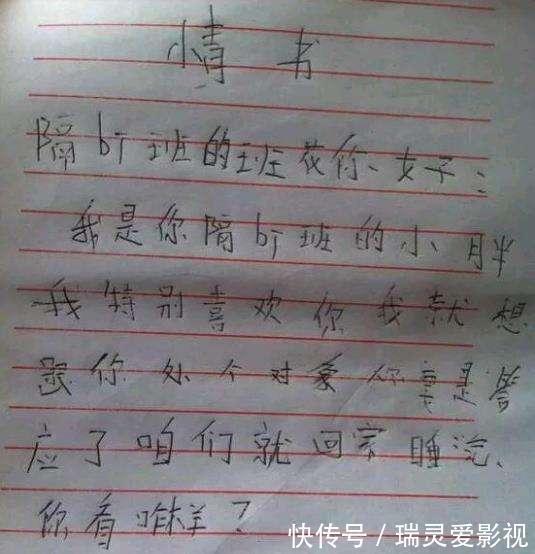 情书
隔bi班的班花你、女子：
我是你隔bi班的小月半
我特别喜欢你我就想
跟你处个对象你要是答
应了咱们就回家睡汔、
你看咋样？
快传号/瑞灵爱影视